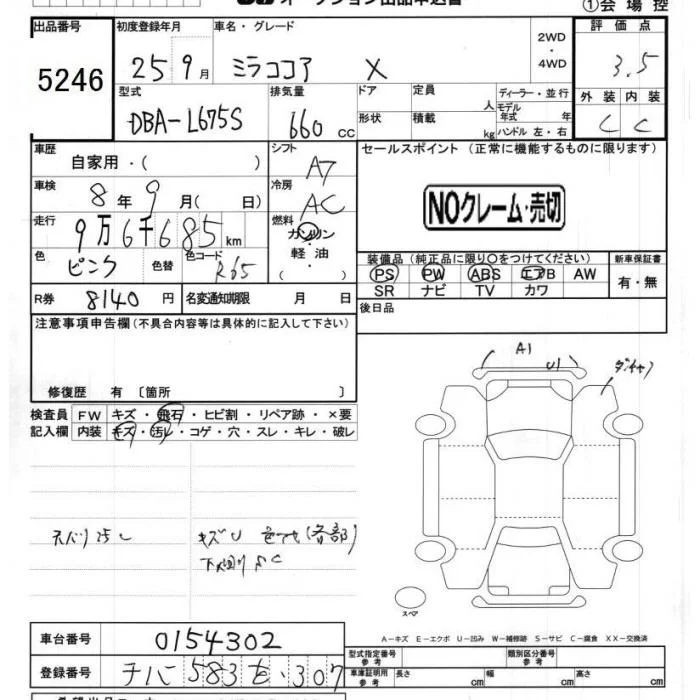 オークション出品申込書
①会場控
出品番号
5246
初度登録年月
25 9月
車名・グレード
ミラココア X
2WD
・
4WD
評価点
3.5
型式
DBA-L675S
排気量
660 cc
ドア
定員
人
形状
積載
kg
ディーラー・並行
モデル
年式 年
ハンドル 左・右
外装 内装
C C
車歴
自家用・( )
シフト
A7
セールスポイント (正常に機能するものに限ります)
車検
8年9月( 日)
冷房
AC
NOクレーム・売切
走行
9万6千685km
燃料
ガソリン
軽油
( )
色
ピンク
色替
色コード
R65
装備品 (純正品に限り〇をつけてください)
新車保証書
PS PW ABS エアB AW
SR ナビ TV カワ
有・無
R券
8140円
名変通知期限 月 日
後日品
注意事項申告欄(不具合内容等は具体的に記入して下さい)
修復歴 有〔箇所 〕
A1
U1
検査員
記入欄
FW キズ・飛石・ヒビ割・リペア跡・×要
内装 キズ・汚れ・コゲ・穴・スレ・キレ・破レ
キズU
(各部)
下回りSC
スペア
A-キズ E-エクボ U-凹み W-補修跡 S-サビ C-腐食 XX-交換済
車台番号
0154302
型式指定番号
参考
類別区分番号
参考
登録番号
チバ 583 を・307
車庫証明用
参考
長さ cm
幅 cm
高さ cm